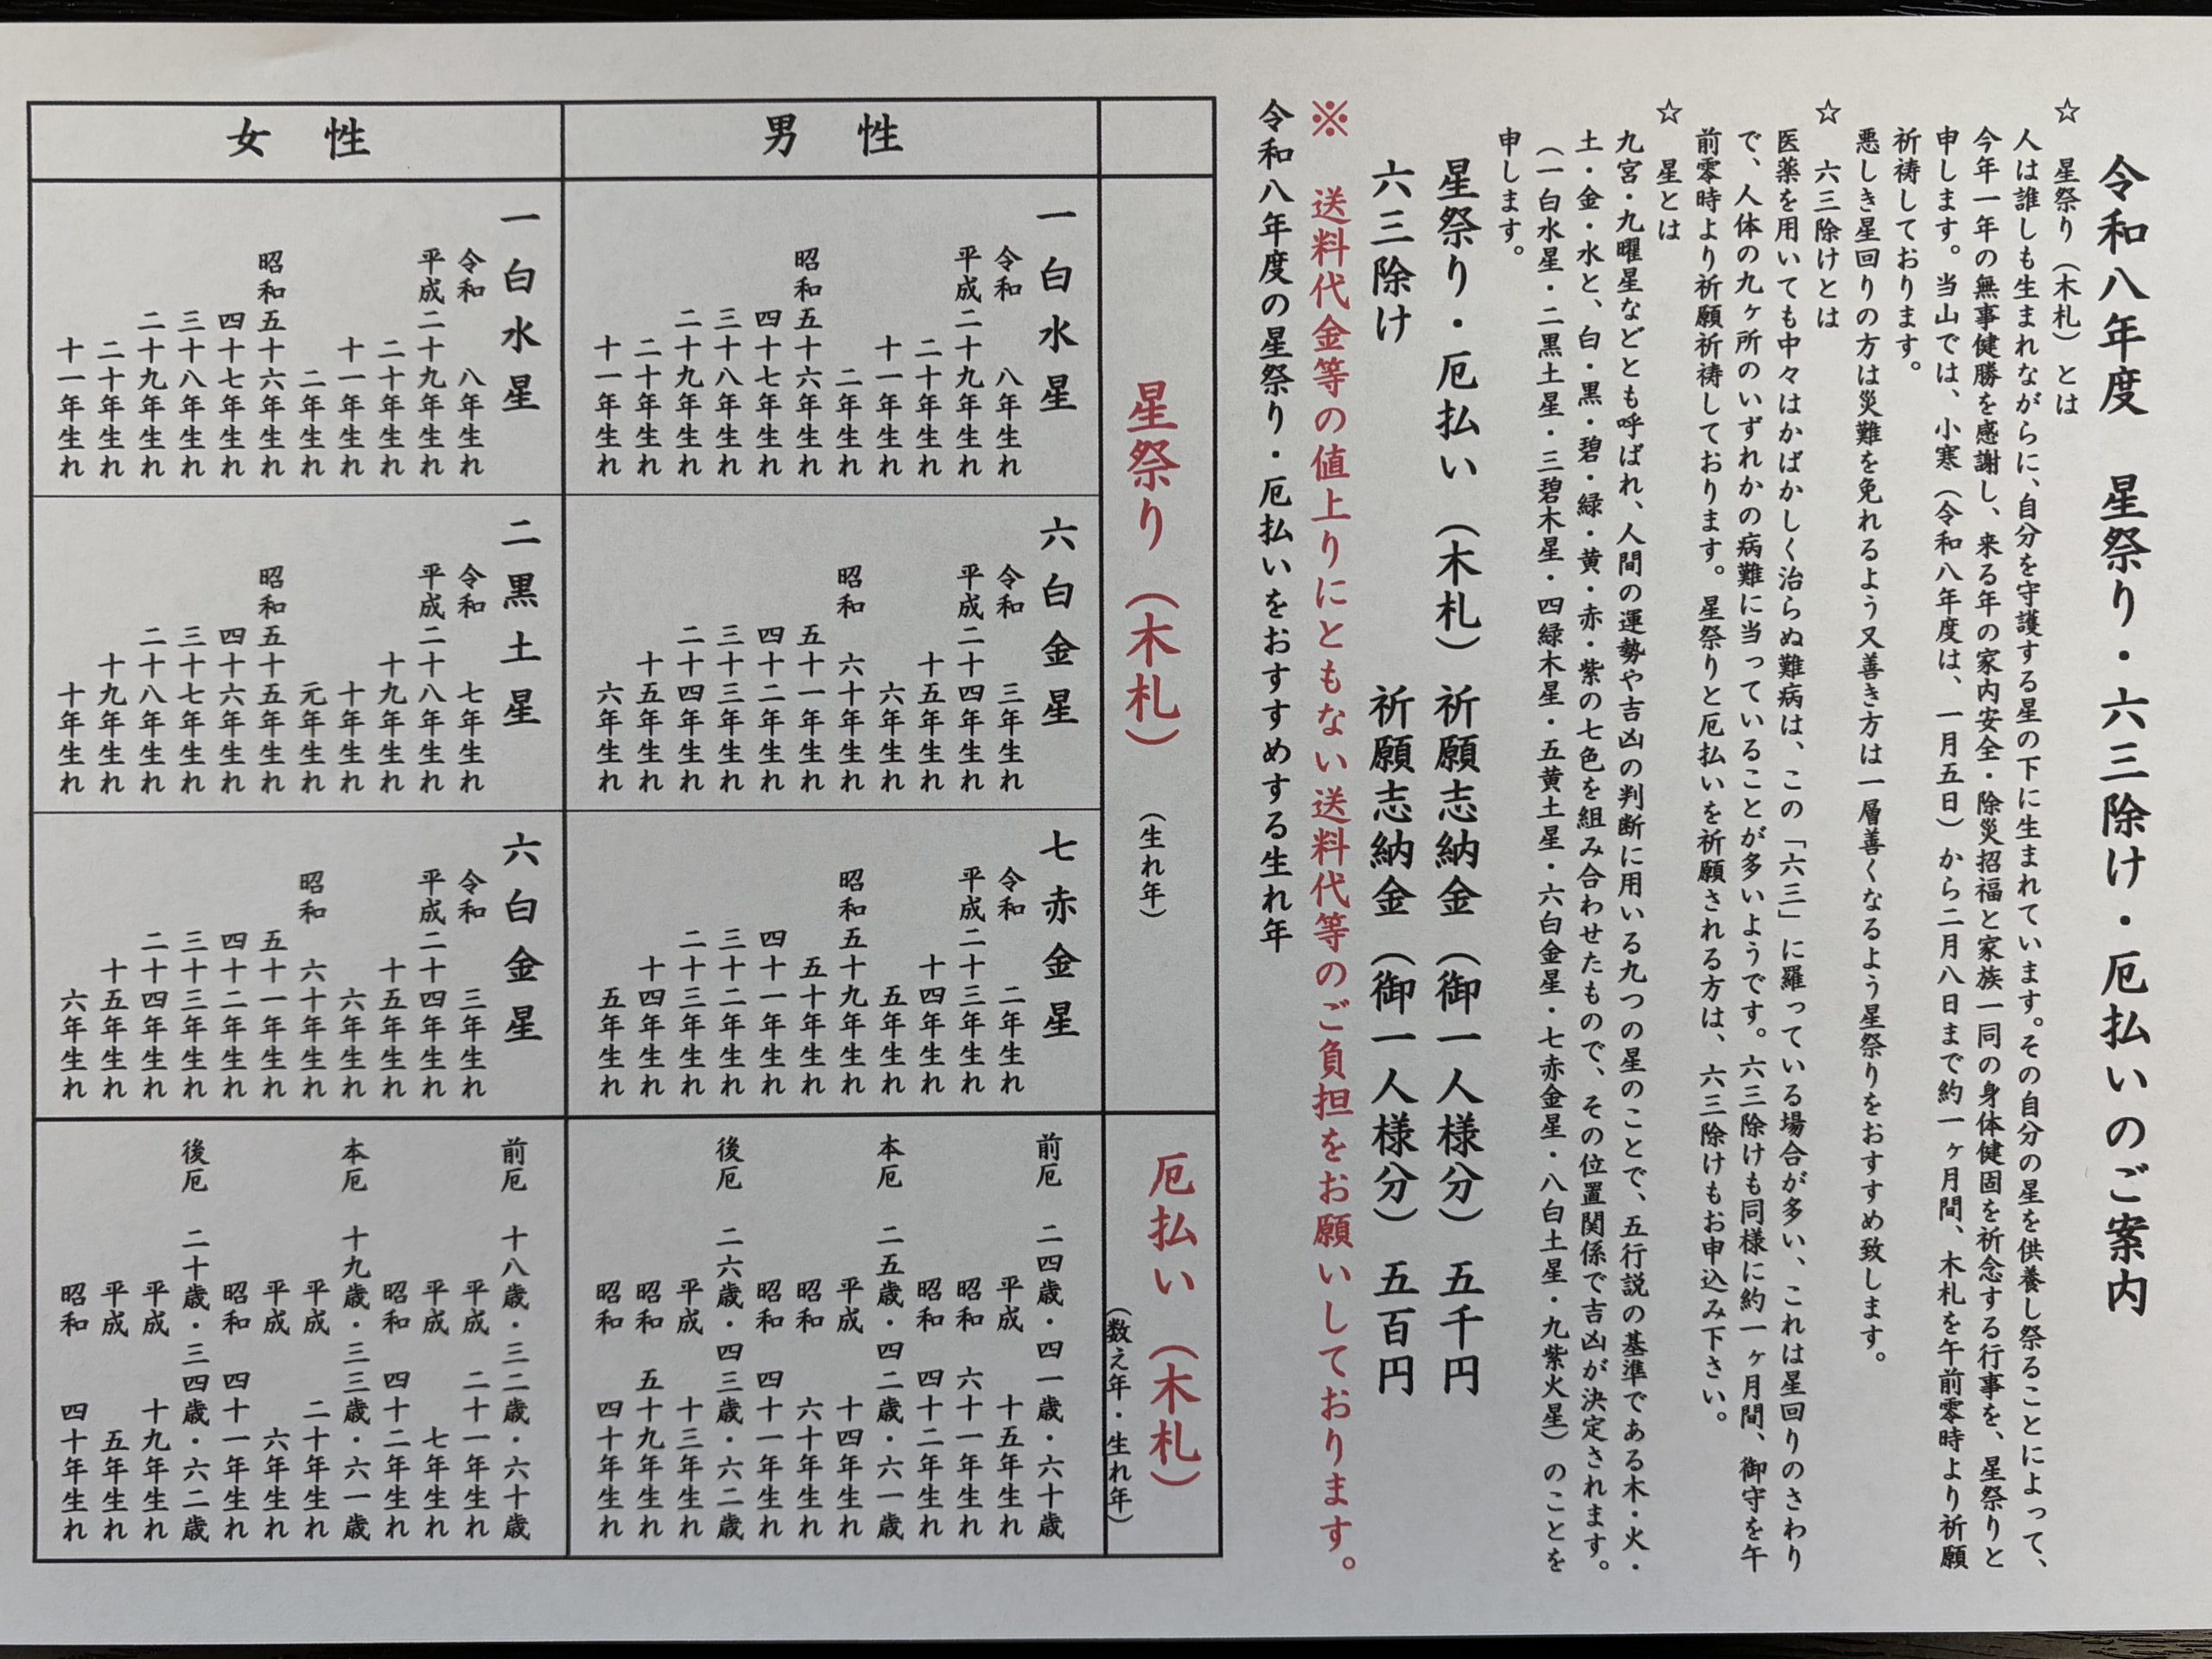 令和八年度　星祭り・六三除け・厄払いのご案内
☆　星祭り（木札）とは
人は誰しも生まれながらに、自分を守護する星の下に生まれています。その自分の星を供養し祭ることによって、
今年一年の無事健勝を感謝し、来る年の家内安全・除災招福と家族一同の身体健固を祈念する行事を、星祭りと
申します。当山では、小寒（令和八年度は、一月五日）から二月八日まで約一ヶ月間、木札を午前零時より祈願
祈祷しております。
悪しき星回りの方は災難を免れるよう又善き方は一層善くなるよう星祭りをおすすめ致します。
☆　六三除けとは
医薬を用いても中々はかばかしく治らぬ難病は、この「六三」に羅っている場合が多い、これは星回りのさわり
で、人体の九ヶ所のいずれかの病難に当っていることが多いようです。六三除けも同様に約一ヶ月間、御守を午
前零時より祈願祈祷しております。星祭りと厄払いを祈願される方は、六三除けもお申込み下さい。
☆　星とは
九宮・九曜星などとも呼ばれ、人間の運勢や吉凶の判断に用いる九つの星のことで、五行説の基準である木・火・
土・金・水と、白・黒・碧・緑・黄・赤・紫の七色を組み合わせたもので、その位置関係で吉凶が決定されます。
（一白水星・二黒土星・三碧木星・四緑木星・五黄土星・六白金星・七赤金星・八白土星・九紫火星）のことを
申します。
星祭り・厄払い（木札）祈願志納金（御一人様分）五千円
六三除け　祈願志納金（御一人様分）五百円
※　送料代金等の値上りにともない送料代等のご負担をお願いしております。
令和八年度の星祭り・厄払いをおすすめする生れ年
星祭り（木札）（生れ年）
厄払い（木札）
（数え年・生れ年）
男性
一白水星
令和　八年生れ
平成二十九年生れ
二十年生れ
十一年生れ
二年生れ
昭和五十六年生れ
四十七年生れ
三十八年生れ
二十九年生れ
二十年生れ
十一年生れ
六白金星
令和　三年生れ
平成二十四年生れ
十五年生れ
六年生れ
昭和　六十年生れ
五十一年生れ
四十二年生れ
三十三年生れ
二十四年生れ
十五年生れ
六年生れ
七赤金星
令和　二年生れ
平成二十三年生れ
十四年生れ
五年生れ
昭和五十九年生れ
五十年生れ
四十一年生れ
三十二年生れ
二十三年生れ
十四年生れ
五年生れ
前厄　二四歳・四一歳・六十歳
平成　十五年生れ
昭和　六十一年生れ
昭和　四十二年生れ
本厄　二五歳・四二歳・六一歳
平成　十四年生れ
昭和　六十年生れ
昭和　四十一年生れ
後厄　二六歳・四三歳・六二歳
平成　十三年生れ
昭和　五十九年生れ
昭和　四十年生れ
女性
一白水星
令和　八年生れ
平成二十九年生れ
二十年生れ
十一年生れ
二年生れ
昭和五十六年生れ
四十七年生れ
三十八年生れ
二十九年生れ
二十年生れ
十一年生れ
二黒土星
令和　七年生れ
平成二十八年生れ
十九年生れ
十年生れ
元年生れ
昭和五十五年生れ
四十六年生れ
三十七年生れ
二十八年生れ
十九年生れ
十年生れ
六白金星
令和　三年生れ
平成二十四年生れ
十五年生れ
六年生れ
昭和　六十年生れ
五十一年生れ
四十二年生れ
三十三年生れ
二十四年生れ
十五年生れ
六年生れ
前厄　十八歳・三二歳・六十歳
平成　二十一年生れ
平成　七年生れ
昭和　四十二年生れ
本厄　十九歳・三三歳・六一歳
平成　二十年生れ
平成　六年生れ
昭和　四十一年生れ
後厄　二十歳・三四歳・六二歳
平成　十九年生れ
平成　五年生れ
昭和　四十年生れ